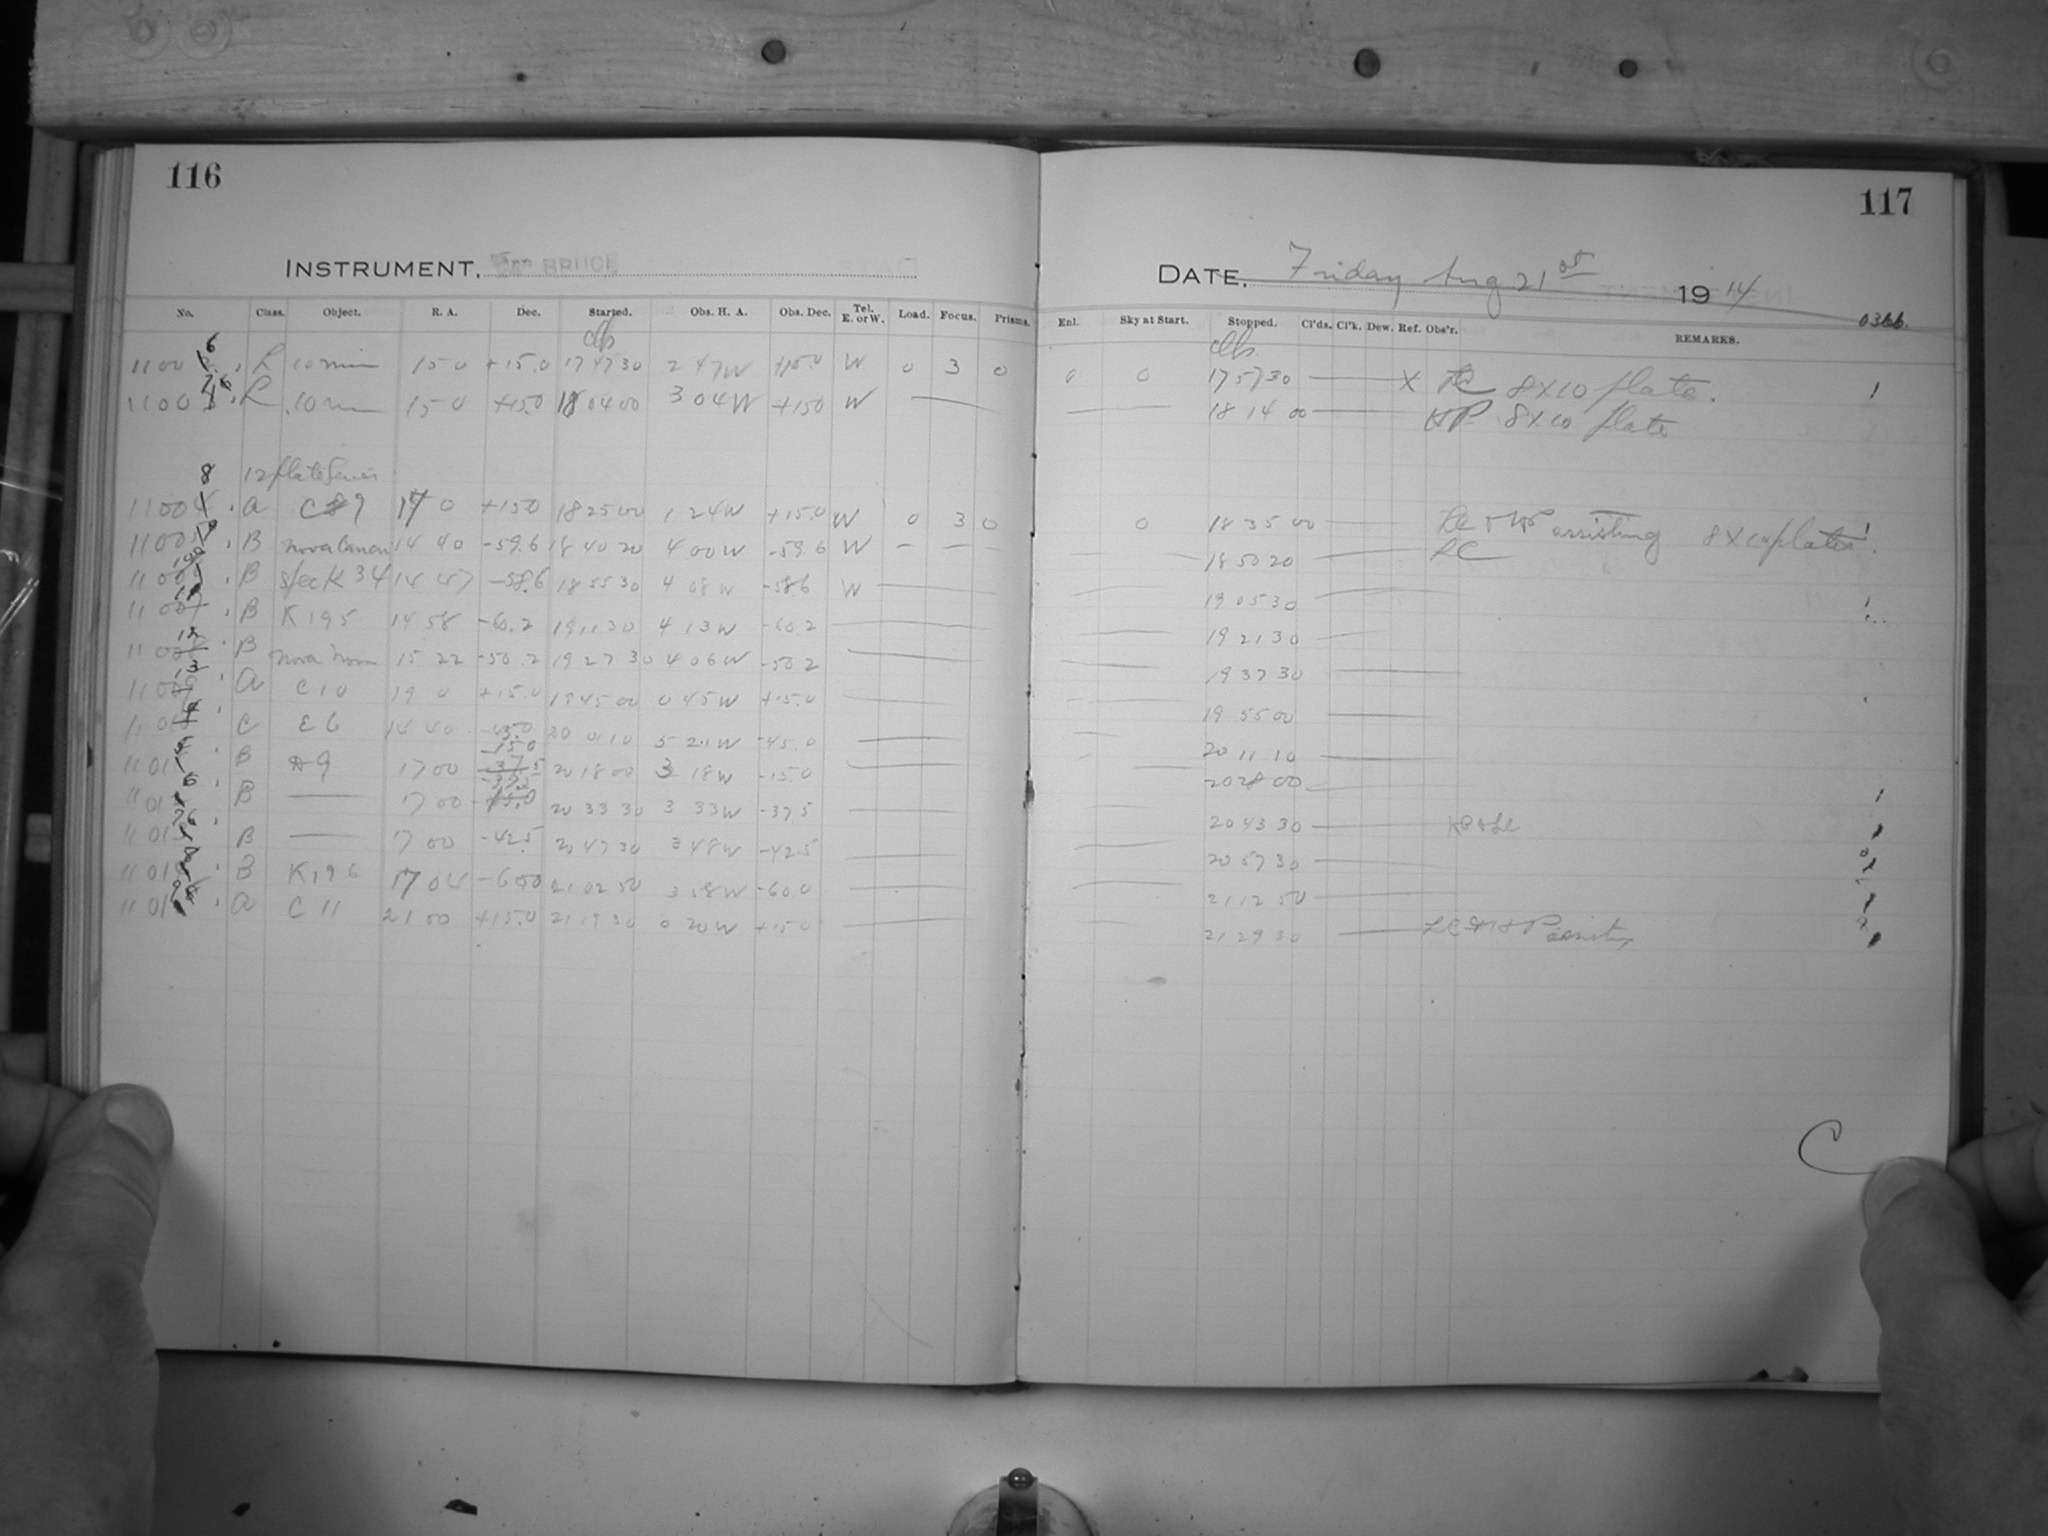 116
INSTRUMENT, BRUCE
No. Class. Object. R. A. Dec. Started. Obs. H. A. Obs. Dec. Tel. E. or W. Load. Focus. Prisms.
L 10 min 15 0 +15.0 17 47 30 2 47 W +15.0 W 0 3 0
L 10 m 15 0 +15.0 18 04 00 3 04 W +15.0 W
12 plate Series
A C 9 17 0 +15.0 18 25 00 1 24 W +15.0 W 0 3 0
B 14 40 -59.6 18 40 20 4 00 W -59.6 W
B K 34 14 47 -58.6 18 55 30 4 08 W -58.6 W
B K 195 14 58 -60.2 19 11 30 4 13 W -60.2
B Nova Norm 15 22 -50.2 19 27 30 4 06 W -50.2
A C 10 19 0 +15.0 19 45 00 0 45 W +15.0
C E 6 14 40 -45.0 20 01 10 5 21 W -45.0
B 9 17 00 -15.0 20 18 00 3 18 W -15.0
B 17 00 -37.5 20 33 30 3 33 W -37.5
B 17 00 -42.5 20 47 30 3 48 W -42.5
B K 196 17 04 -60.0 21 02 50 3 58 W -60.0
A C 11 21 00 +15.0 21 19 30 0 20 W +15.0
117
DATE, Friday Aug 21st 1914
0366
Enl. Sky at Start. Stopped. Cl'ds. Cl'k. Dew. Ref. Obs'r. REMARKS.
0 0 17 57 30 X LC 8 x 10 plate. 1
18 14 00 HP 8 x 10 plate
0 18 35 00 LC + HP assisting 8 x 10 plates.
18 50 20 LC
19 05 30
19 21 30
19 37 30
19 55 00
20 11 10
20 28 00
20 43 30
20 57 30
21 12 50
21 29 30 LC + HP assisting
C